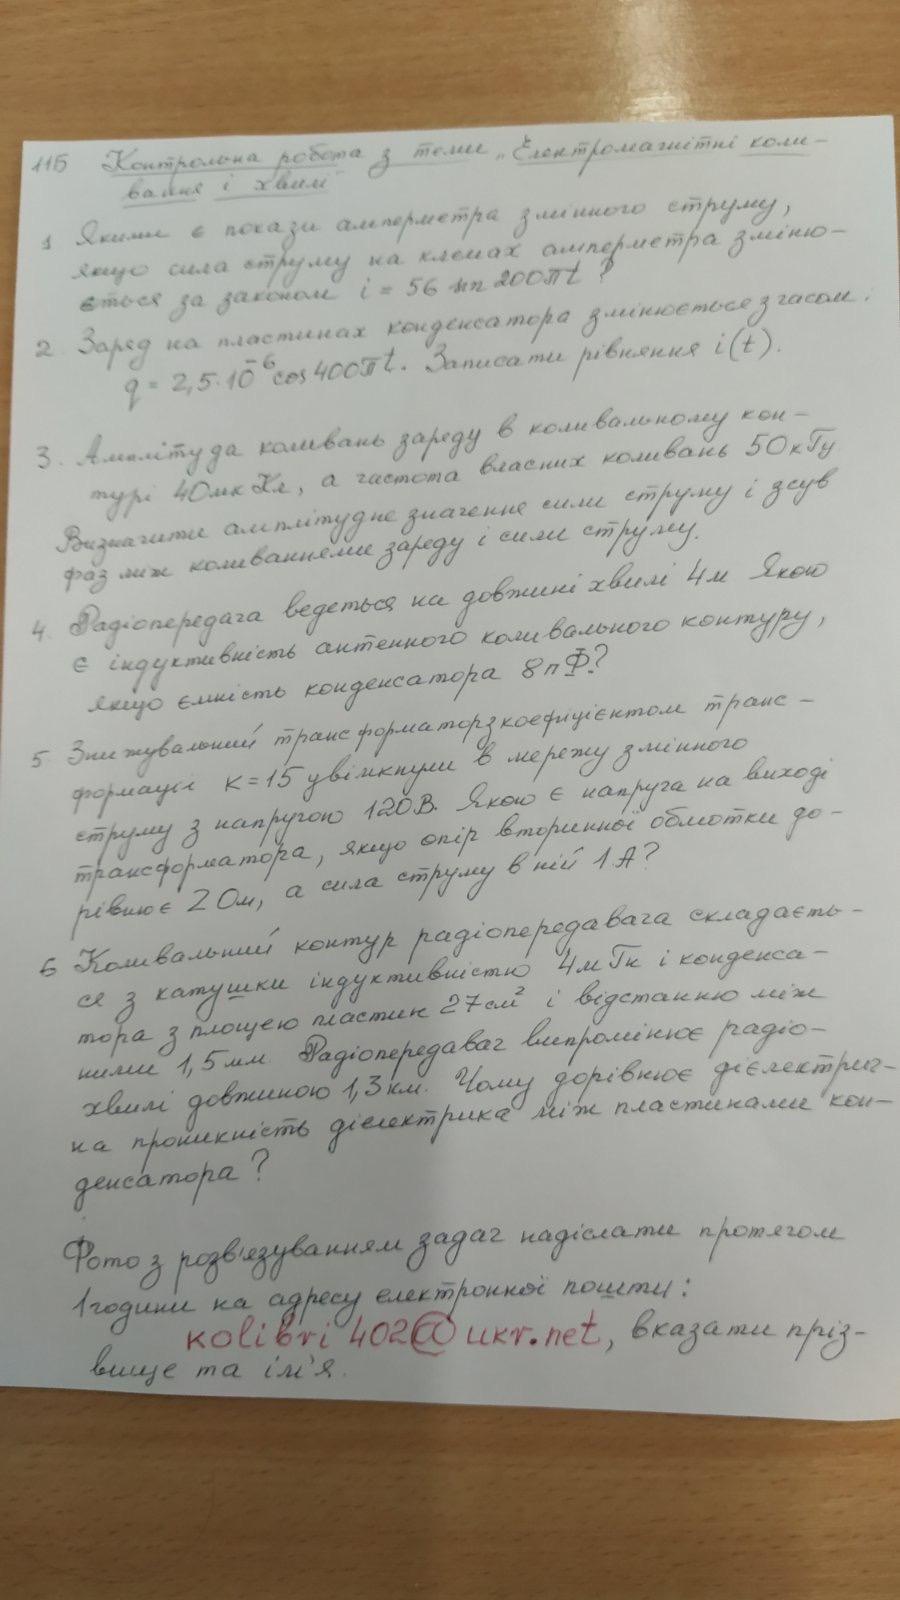 11Б Контрольна робота з теми „Електромагнітні коли-
вання і хвилі"
1 Якими є покази амперметра змінного струму,
якщо сила струму на клемах амперметра зміню-
ється за законом i = 56 sin 200πt ?
2. Заряд на пластинах конденсатора змінюється з часом:
q = 2,5·10⁻⁶cos 400πt. Записати рівняння i(t).
3. Амплітуда коливань заряду в коливальному кон-
турі 40мкКл, а частота власних коливань 50кГц
Визначити амплітудне значення сили струму і зсув
фаз між коливаннями заряду і сили струму.
4. Радіопередача ведеться на довжині хвилі 4м Якою
є індуктивність антенного коливального контуру,
якщо ємність конденсатора 8пФ?
5. Знижувальний трансформатор з коефіцієнтом транс-
формації к=15 увімкнули в мережу змінного
струму з напругою 120В. Якою є напруга на виході
трансформатора, якщо опір вторинної обмотки до-
рівнює 2 Ом, а сила струму в ній 1А?
6 Коливальний контур радіопередавача складаєть-
ся з катушки індуктивністю 4мГн і конденса-
тора з площею пластин 27см² і відстанню між
ними 1,5мм. Радіопередавач випромінює радіо-
хвилі довжиною 1,3км. Чому дорівнює діелектрич-
на проникність діелектрика між пластинами кон-
денсатора?
Фото з розв'язуванням задач надіслати протягом
1години на адресу електронної пошти:
kolibri402@ukr.net, вказати пріз-
вище та ім'я.